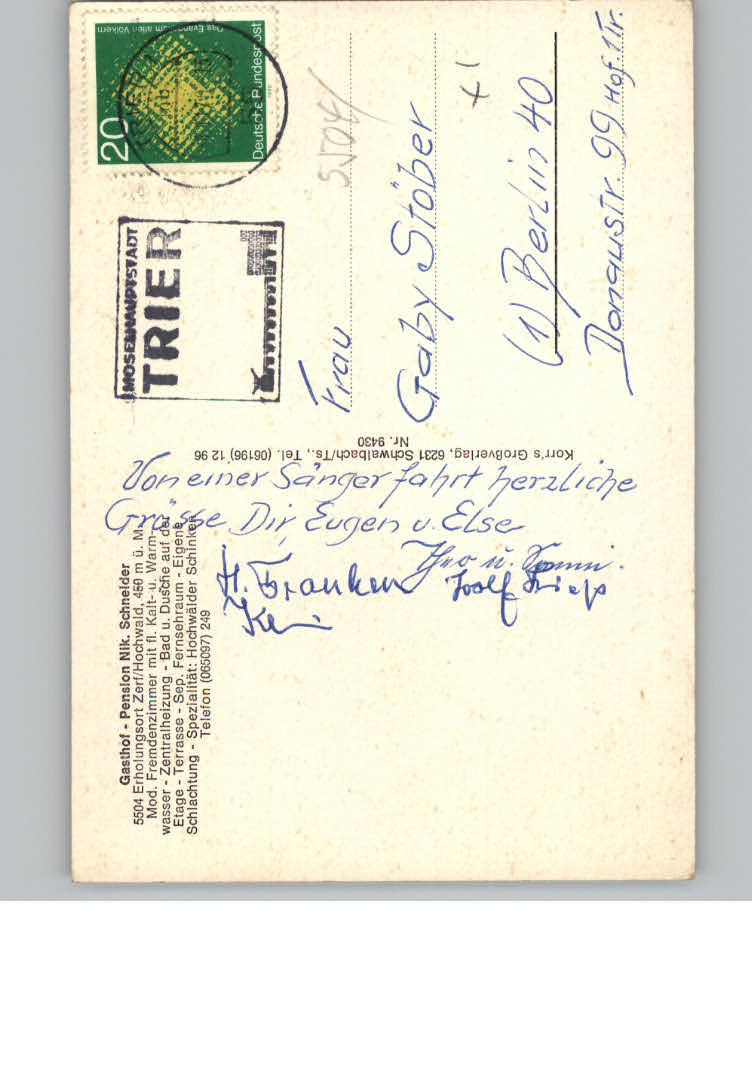 Das Evangelium allen Völkern
20
Deutsche Bundespost
MOSELHAUPTSTADT
TRIER
5504
Frau
Gaby Stöber
(1) Berlin 40
Donaustr. 99 Hof. 1Tr.
Korr's Großverlag, 6231 Schwalbach/Ts., Tel. (06196) 12 96
Nr. 9430
Von einer Sängerfahrt herzliche
Grüsse Dir, Eugen u. Else
H. Franken
Gasthof - Pension Nik. Schneider
5504 Erholungsort Zerf/Hochwald, 450 m ü. M.
Mod. Fremdenzimmer mit fl. Kalt- u. Warm-
wasser - Zentralheizung - Bad u. Dusche auf der
Etage - Terrasse - Sep. Fernsehraum - Eigene
Schlachtung - Spezialität: Hochwälder Schinken
Telefon (065097) 249